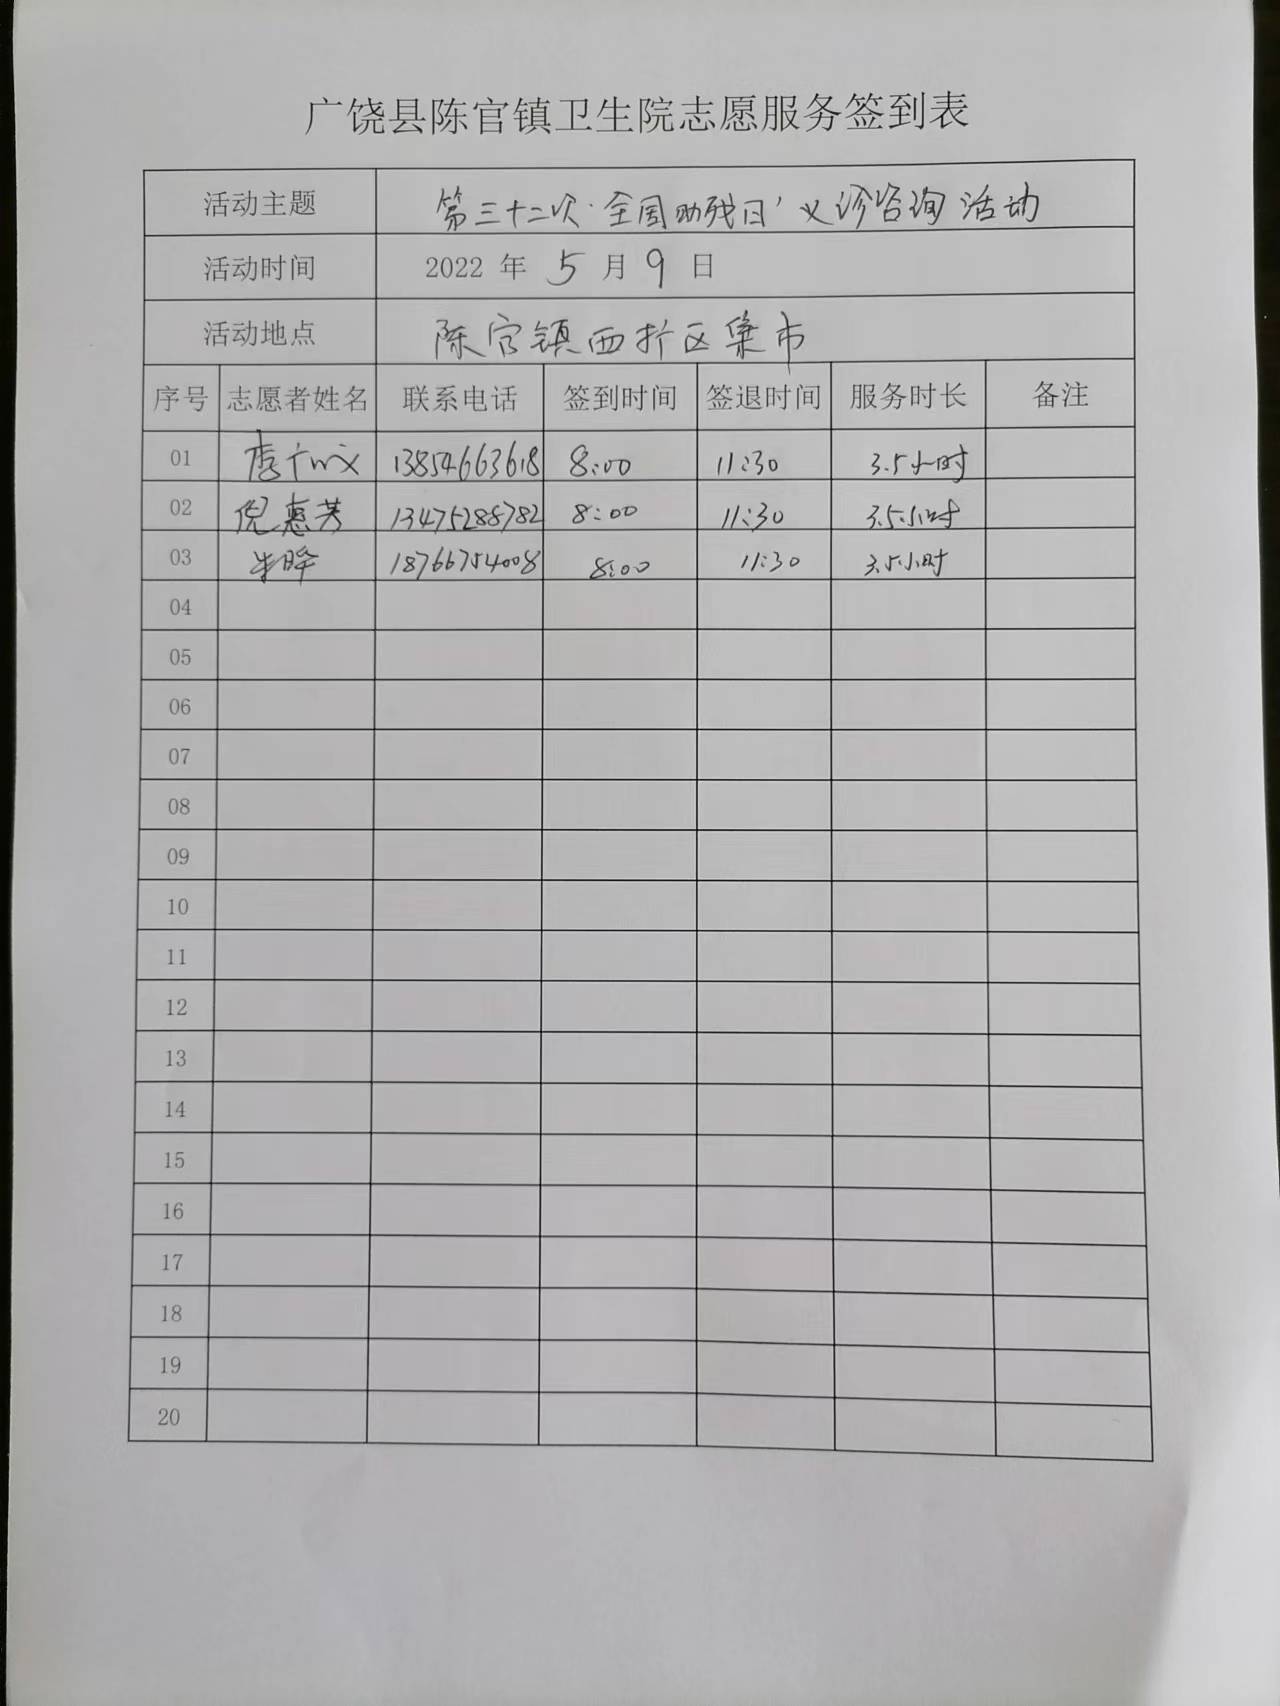 广饶县陈官镇卫生院志愿服务签到表
活动主题 第三十二次"全国助残日"义诊咨询活动
活动时间 2022 年 5 月 9 日
活动地点 陈官镇西折区集市
序号 志愿者姓名 联系电话 签到时间 签退时间 服务时长 备注
01 李 13854663618 8:00 11:30 3.5小时
02 倪惠芳 13475288782 8:00 11:30 3.5小时
03 18766754008 8:00 11:30 3.5小时
04
05
06
07
08
09
10
11
12
13
14
15
16
17
18
19
20